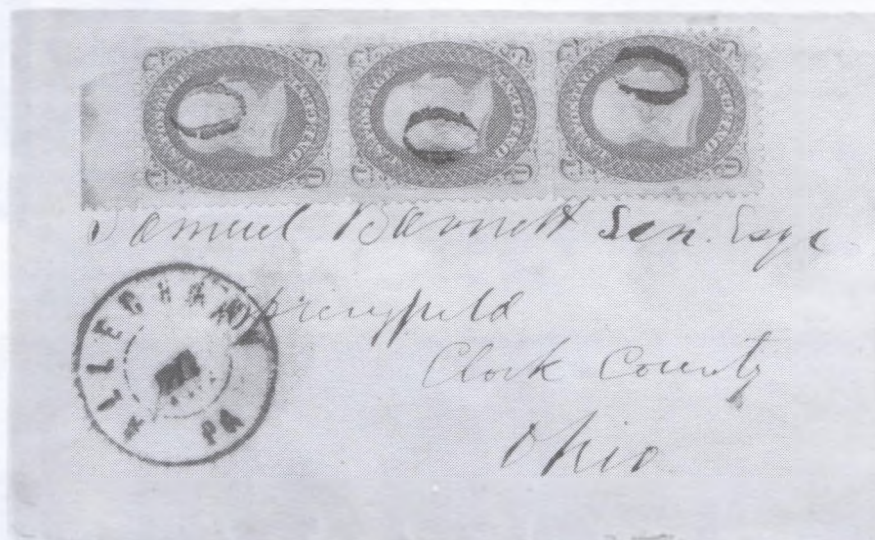 Samuel Barnett Sen. Esqr
Springfield
Clark County
Ohio
ALLEGHANY
PA